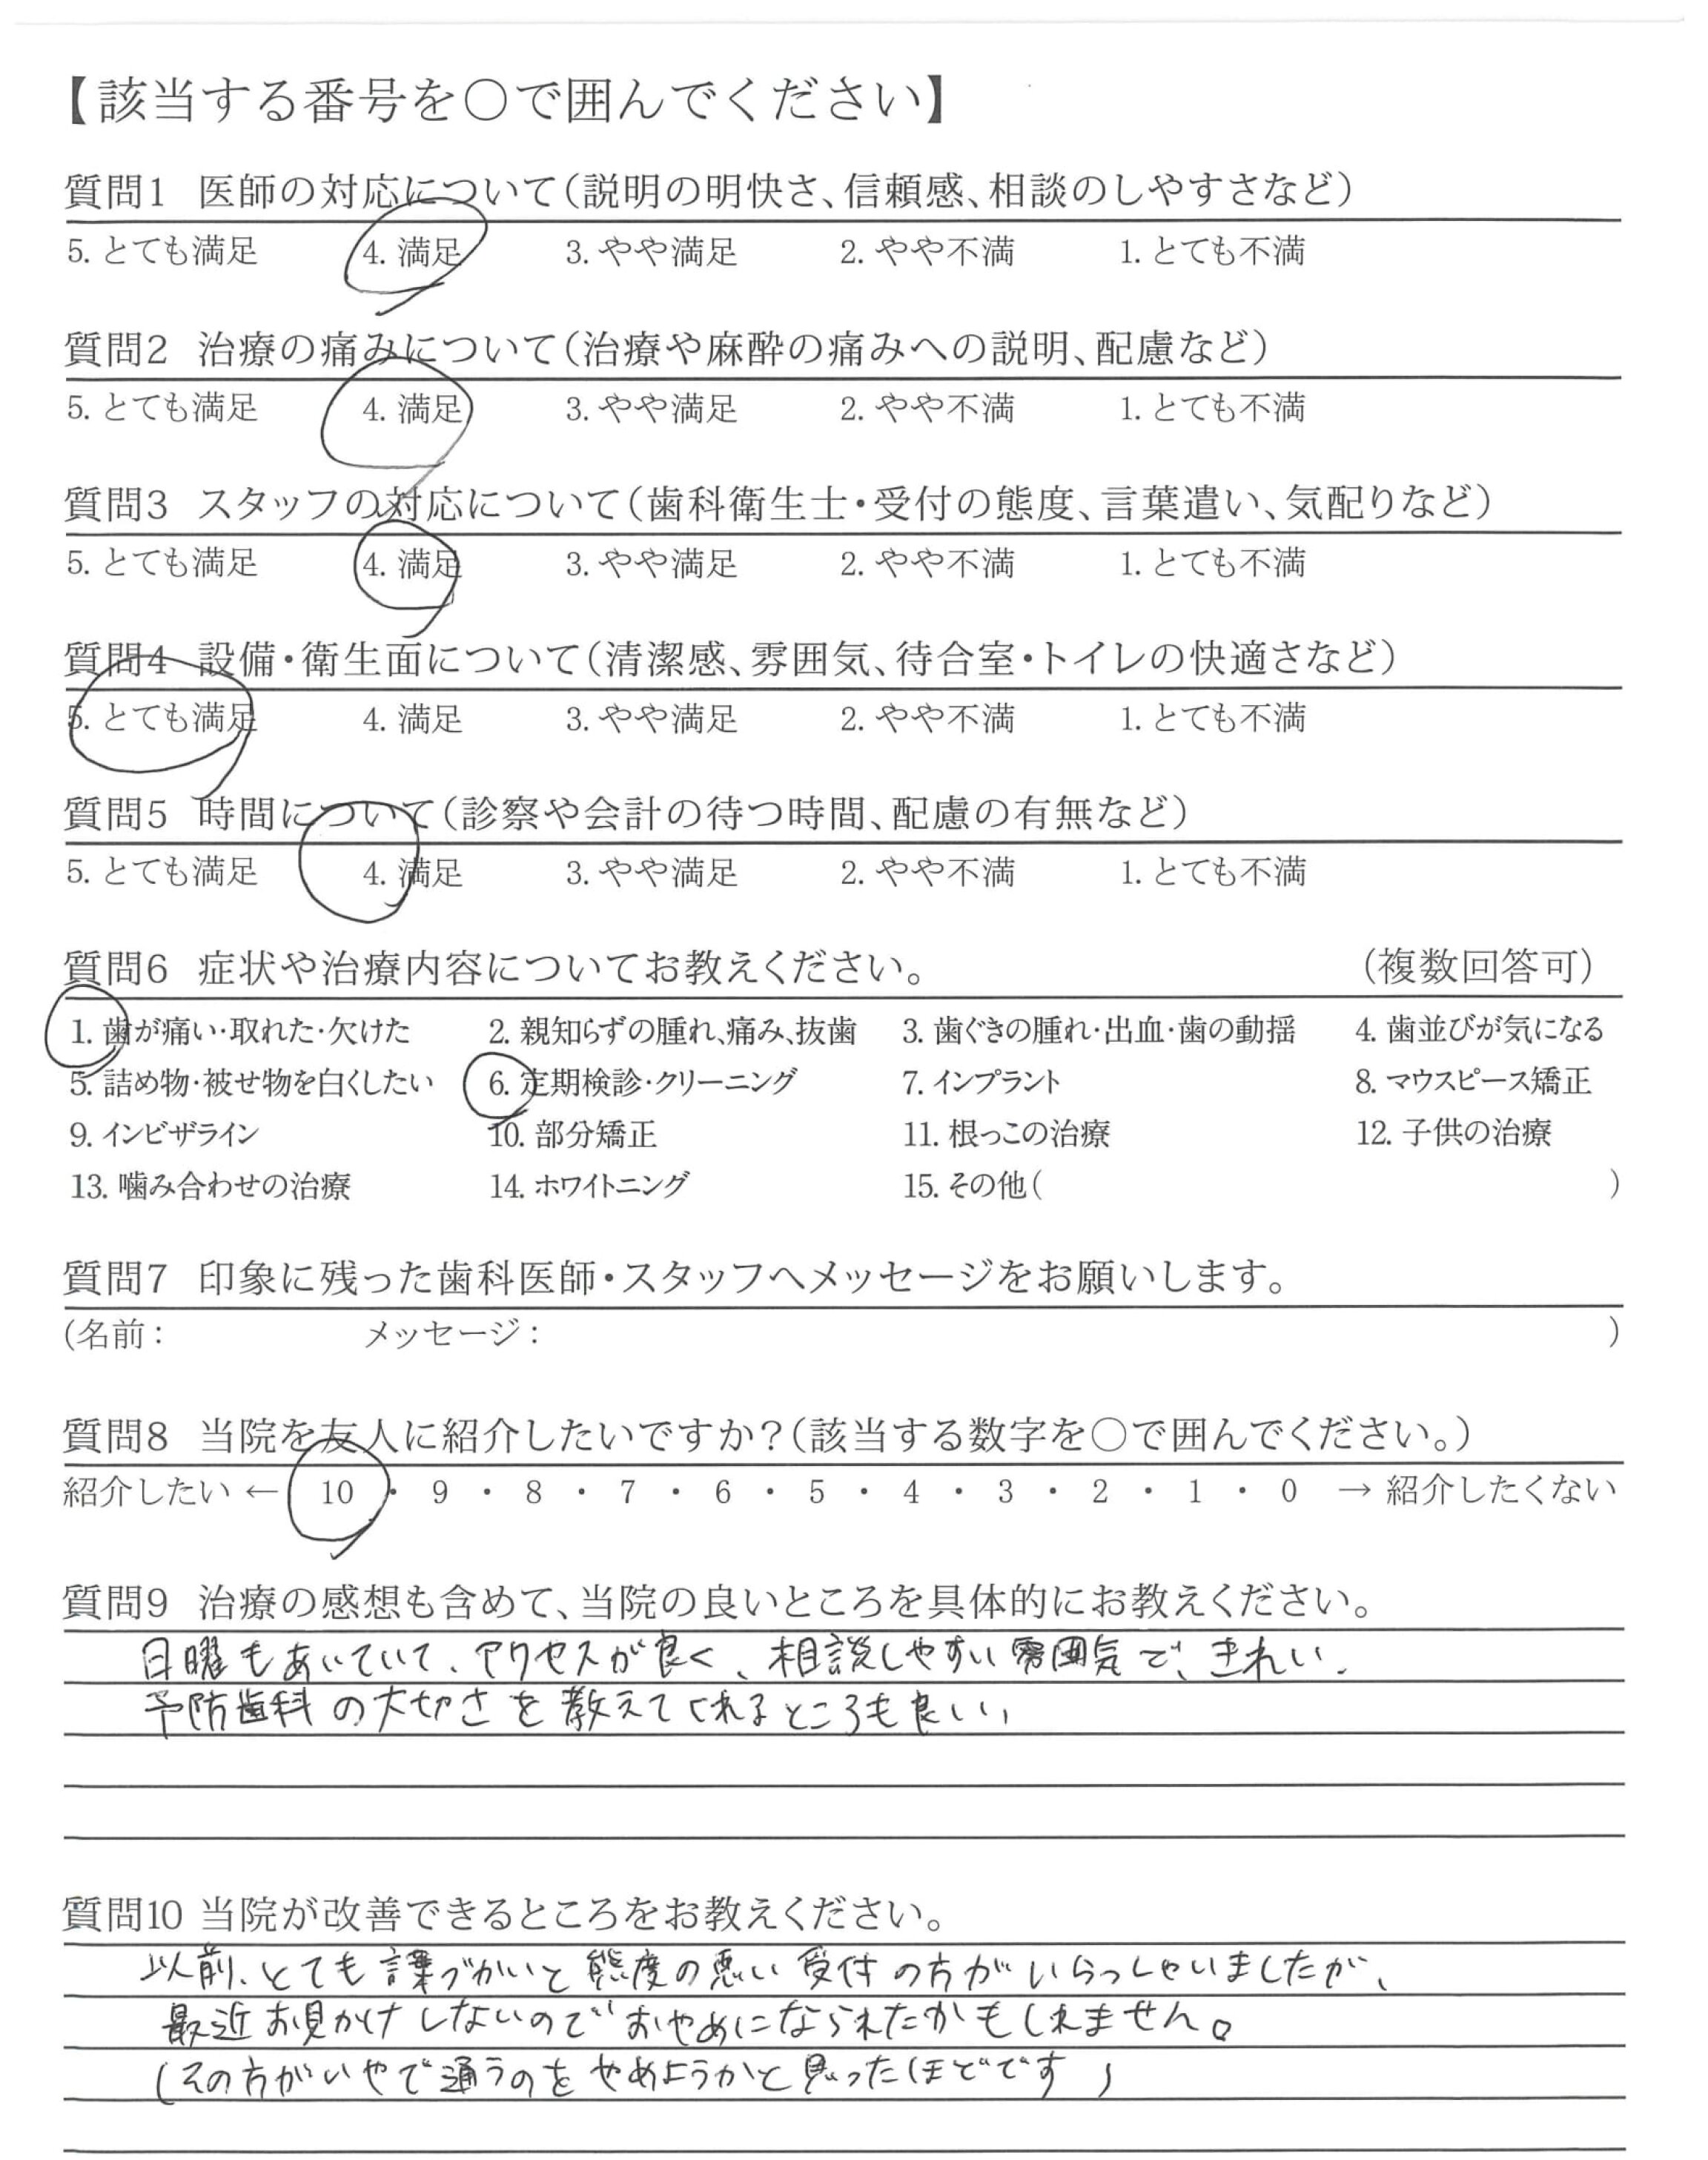 【該当する番号を○で囲んでください】
質問1 医師の対応について(説明の明快さ、信頼感、相談のしやすさなど)
5. とても満足 4. 満足 3. やや満足 2. やや不満 1. とても不満
質問2 治療の痛みについて(治療や麻酔の痛みへの説明、配慮など)
5. とても満足 4. 満足 3. やや満足 2. やや不満 1. とても不満
質問3 スタッフの対応について(歯科衛生士・受付の態度、言葉遣い、気配りなど)
5. とても満足 4. 満足 3. やや満足 2. やや不満 1. とても不満
質問4 設備・衛生面について(清潔感、雰囲気、待合室・トイレの快適さなど)
5. とても満足 4. 満足 3. やや満足 2. やや不満 1. とても不満
質問5 時間について(診察や会計の待つ時間、配慮の有無など)
5. とても満足 4. 満足 3. やや満足 2. やや不満 1. とても不満
質問6 症状や治療内容についてお教えください。 (複数回答可)
1. 歯が痛い・取れた・欠けた 2. 親知らずの腫れ、痛み、抜歯 3. 歯ぐきの腫れ・出血・歯の動揺 4. 歯並びが気になる
5. 詰め物・被せ物を白くしたい 6. 定期検診・クリーニング 7. インプラント 8. マウスピース矯正
9. インビザライン 10. 部分矯正 11. 根っこの治療 12. 子供の治療
13. 噛み合わせの治療 14. ホワイトニング 15. その他( )
質問7 印象に残った歯科医師・スタッフへメッセージをお願いします。
(名前: メッセージ: )
質問8 当院を友人に紹介したいですか?(該当する数字を○で囲んでください。)
紹介したい ← 10 ・ 9 ・ 8 ・ 7 ・ 6 ・ 5 ・ 4 ・ 3 ・ 2 ・ 1 ・ 0 → 紹介したくない
質問9 治療の感想も含めて、当院の良いところを具体的にお教えください。
日曜もあいていて、アクセスが良く、相談しやすい雰囲気で、きれい、
予防歯科の大切さを教えてくれるところも良い、
質問10 当院が改善できるところをお教えください。
以前、とても言葉づかいと態度の悪い受付の方がいらっしゃいましたが、
最近お見かけしないのでおやめになられたかもしれません。
(その方がいやで通うのをやめようかと思ったほどです)